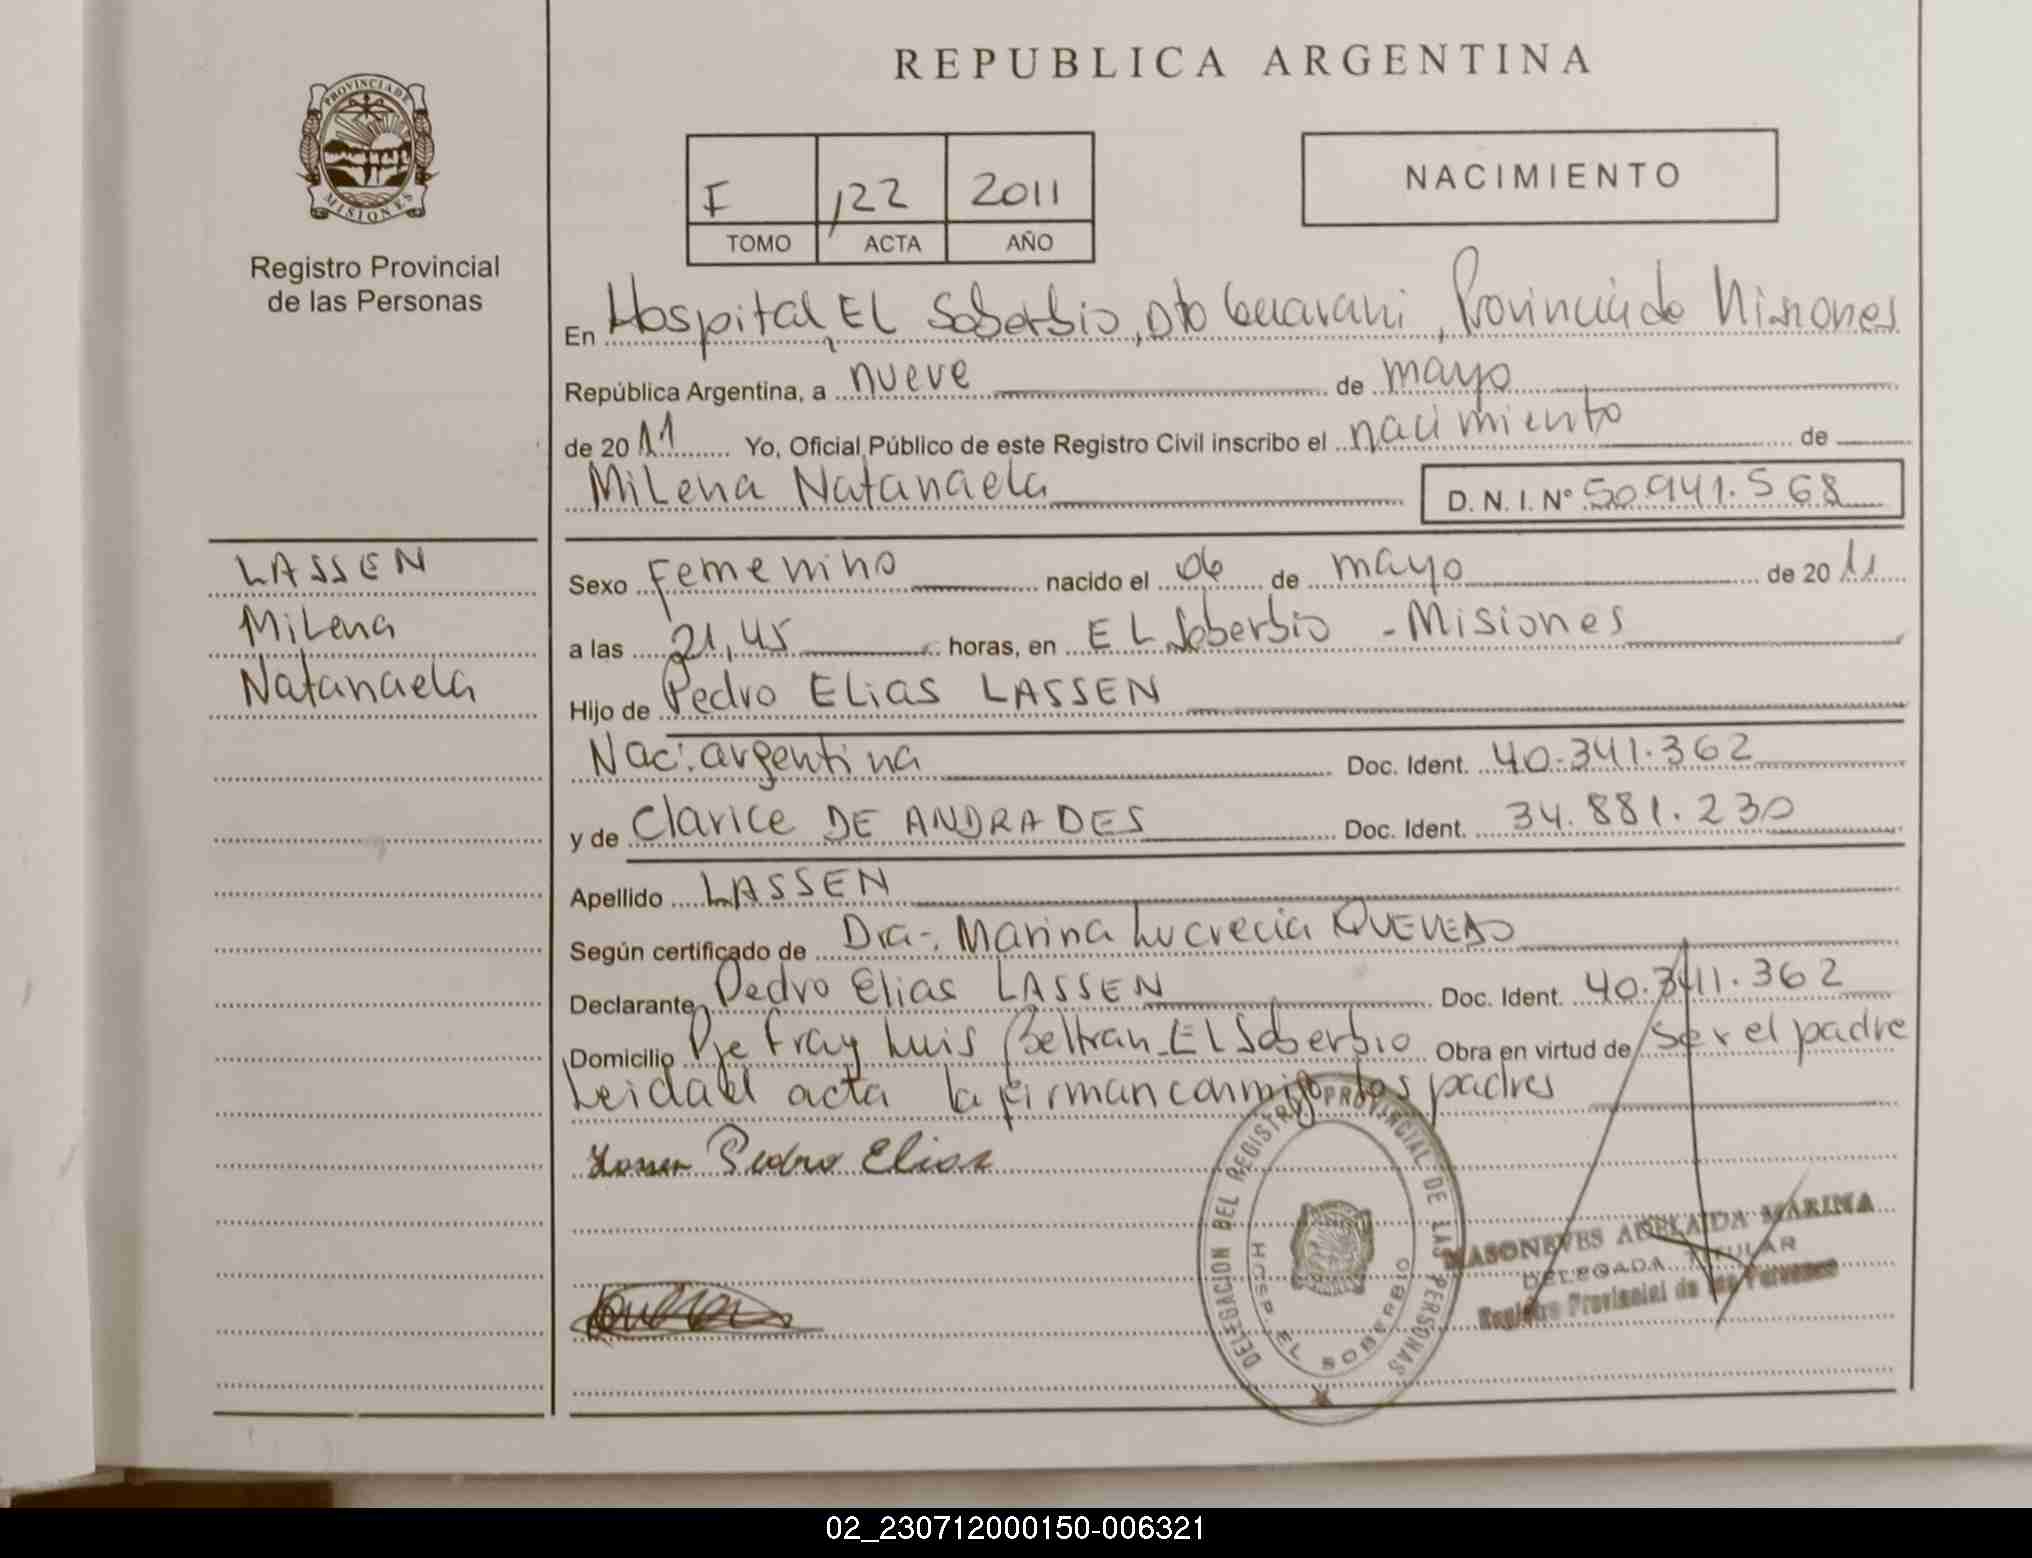 REPUBLICA ARGENTINA
PROVINCIA DE MISIONES
Registro Provincial
de las Personas
F 122 2011
TOMO ACTA AÑO
NACIMIENTO
En Hospital, El Soberbio, Dto Guarani, Provincia de Misiones
República Argentina, a nueve de mayo
de 2011 Yo, Oficial Público de este Registro Civil inscribo el nacimiento de
Milena Natanaela D. N. I. Nº 50.941.568
LASSEN
Milena
Natanaela
Sexo Femenino nacido el 06 de mayo de 2011
a las 21,45 horas, en El Soberbio - Misiones
Hijo de Pedro Elias LASSEN
Nac: argentina Doc. Ident. 40.341.362
y de Clarice DE ANDRADES Doc. Ident. 34.881.230
Apellido LASSEN
Según certificado de Dra. Marina Lucrecia QUEVEDO
Declarante Pedro Elias LASSEN Doc. Ident. 40.341.362
Domicilio Pje Fray Luis Beltran El Soberbio Obra en virtud de ser el padre
Leida el acta la firman conmigo los padres
Lassen Pedro Elias
DELEGACION DEL REGISTRO PROVINCIAL DE LAS PERSONAS
HOSP. EL SOBERBIO
MASONEVES ADELAIDA MARINA
DELEGADA TITULAR
Registro Provincial de las Personas
02_230712000150-006321